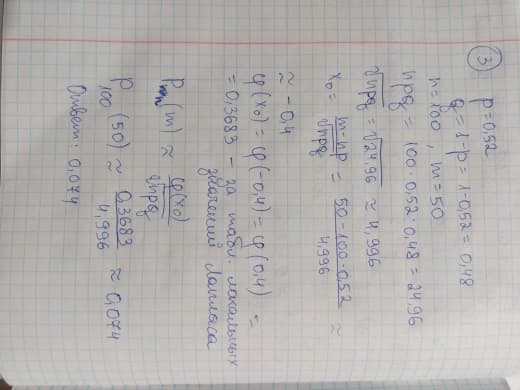 3 p=0,52
q = 1-p = 1-0,52 = 0,48
n=100 , m=50
npq = 100·0,52·0,48 = 24,96
√npq = √24,96 ≈ 4,996
x₀ = (m-np)/√npq = (50-100·0,52)/4,996 ≈
≈ -0,4
φ(x₀) = φ(-0,4) = φ(0,4) =
= 0,3683 - за табл. локальных
значений Лапласа
Pₙ(m) ≈ φ(x₀)/√npq
P₁₀₀(50) ≈ 0,3683/4,996 ≈ 0,074
Ответ: 0,074